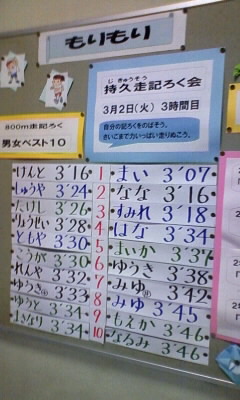 もりもり
じ きゅうそう
持久走記ろく会
3月2日(火) 3時間目
自分の記ろくをのばそう。
さいごまで力いっぱい走りぬこう。
800m走記ろく
男女ベスト10
けんと 3'16 1 まい 3'07
しゅうや 3'24 2 なな 3'16
たけし 3'26 3 すみれ 3'18
りょうせい 3'28 4 はな 3'34
ともや 3'30 5 まいか 3'37
こうが 3'30 6 ゆうき 3'38
れんや 3'32 7 みゆ 3'42
ゆうき 3'33 8 みゆ 3'45
ゆうと 3'34 9 もえか 3'46
3'34 10 なろみ 3'46